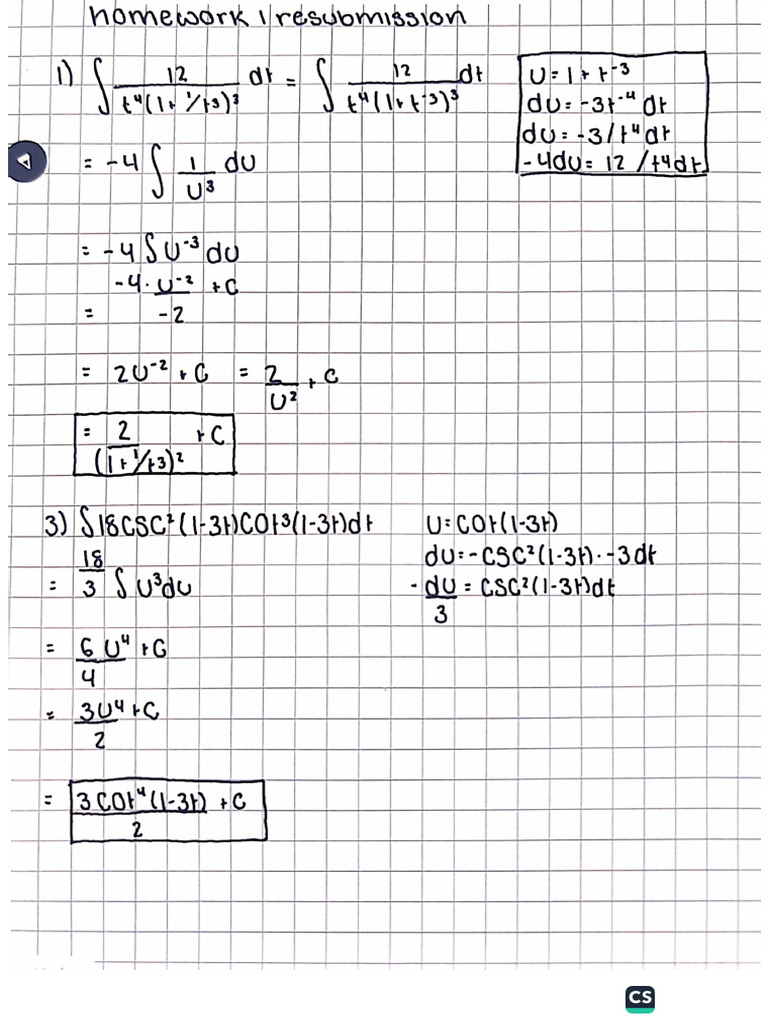 homework 1 resubmission
1) ∫ 12/(t⁴(1+1/t3)³) dt = ∫ 12/(t⁴(1+t⁻³)³) dt
U=1+t⁻³
dU=-3t⁻⁴dt
dU=-3/t⁴dt
-4dU=12/t4dt
= -4 ∫ 1/U³ dU
= -4∫U⁻³dU
= -4·U⁻²/-2 +C
= 2U⁻²+C = 2/U² +C
= 2/(1+1/t3)² +C
3) ∫18CSC²(1-3t)COt³(1-3t)dt
U=COt(1-3t)
dU=-CSC²(1-3t)·-3dt
-dU/3 = CSC²(1-3t)dt
= 18/3 ∫U³dU
= 6U⁴/4 +C
= 3U⁴/2 +C
= 3COt⁴(1-3t)/2 +C
CS